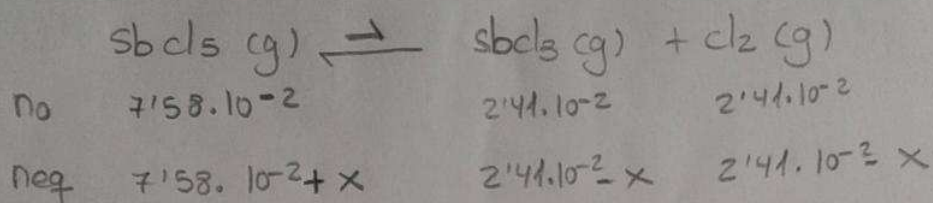 sbcl5 (g) ⇌ sbcl3 (g) + cl2 (g)
no 7'58.10-2 2'41.10-2 2'41.10-2
neq 7'58. 10-2 + x 2'41.10-2 - x 2'41. 10-2 - x